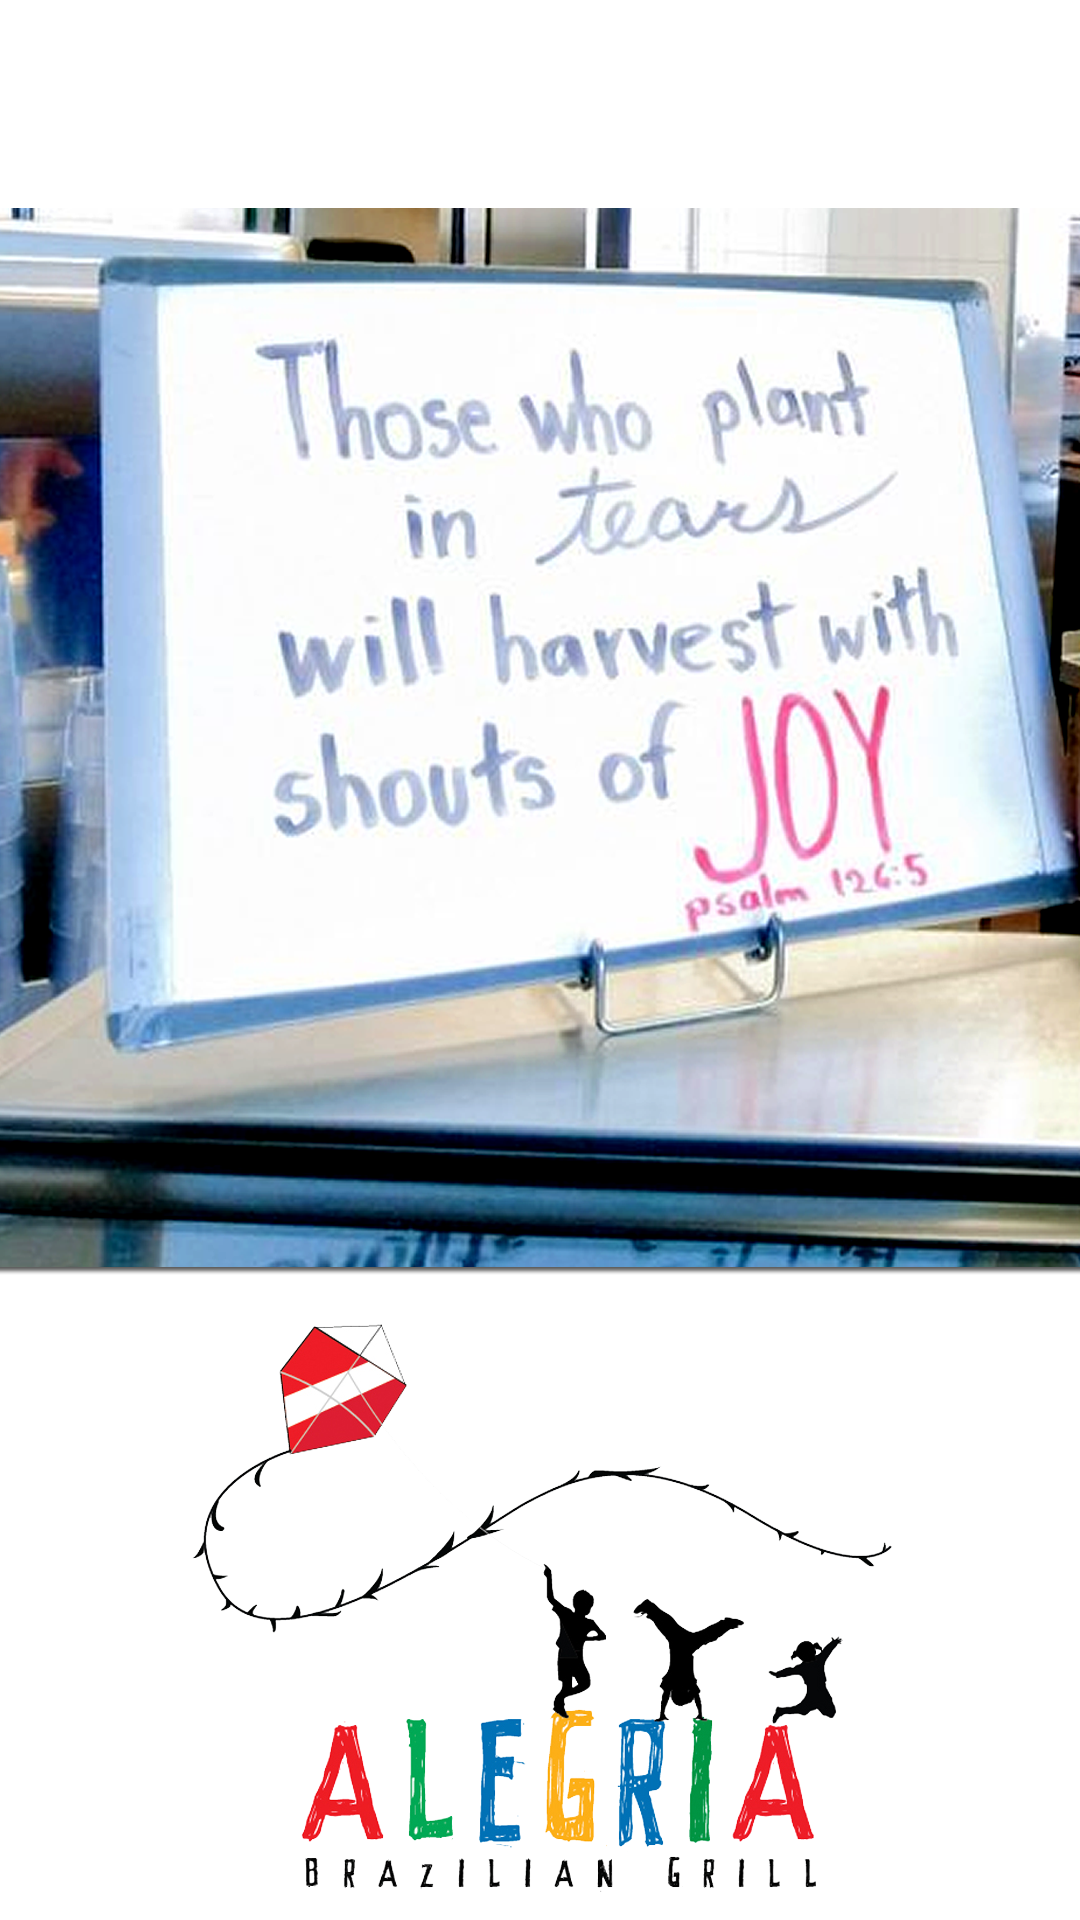 Those who plant
in tears
will harvest with
shouts of JOY
psalm 126:5
ALEGRIA
BRAZILIAN GRILL